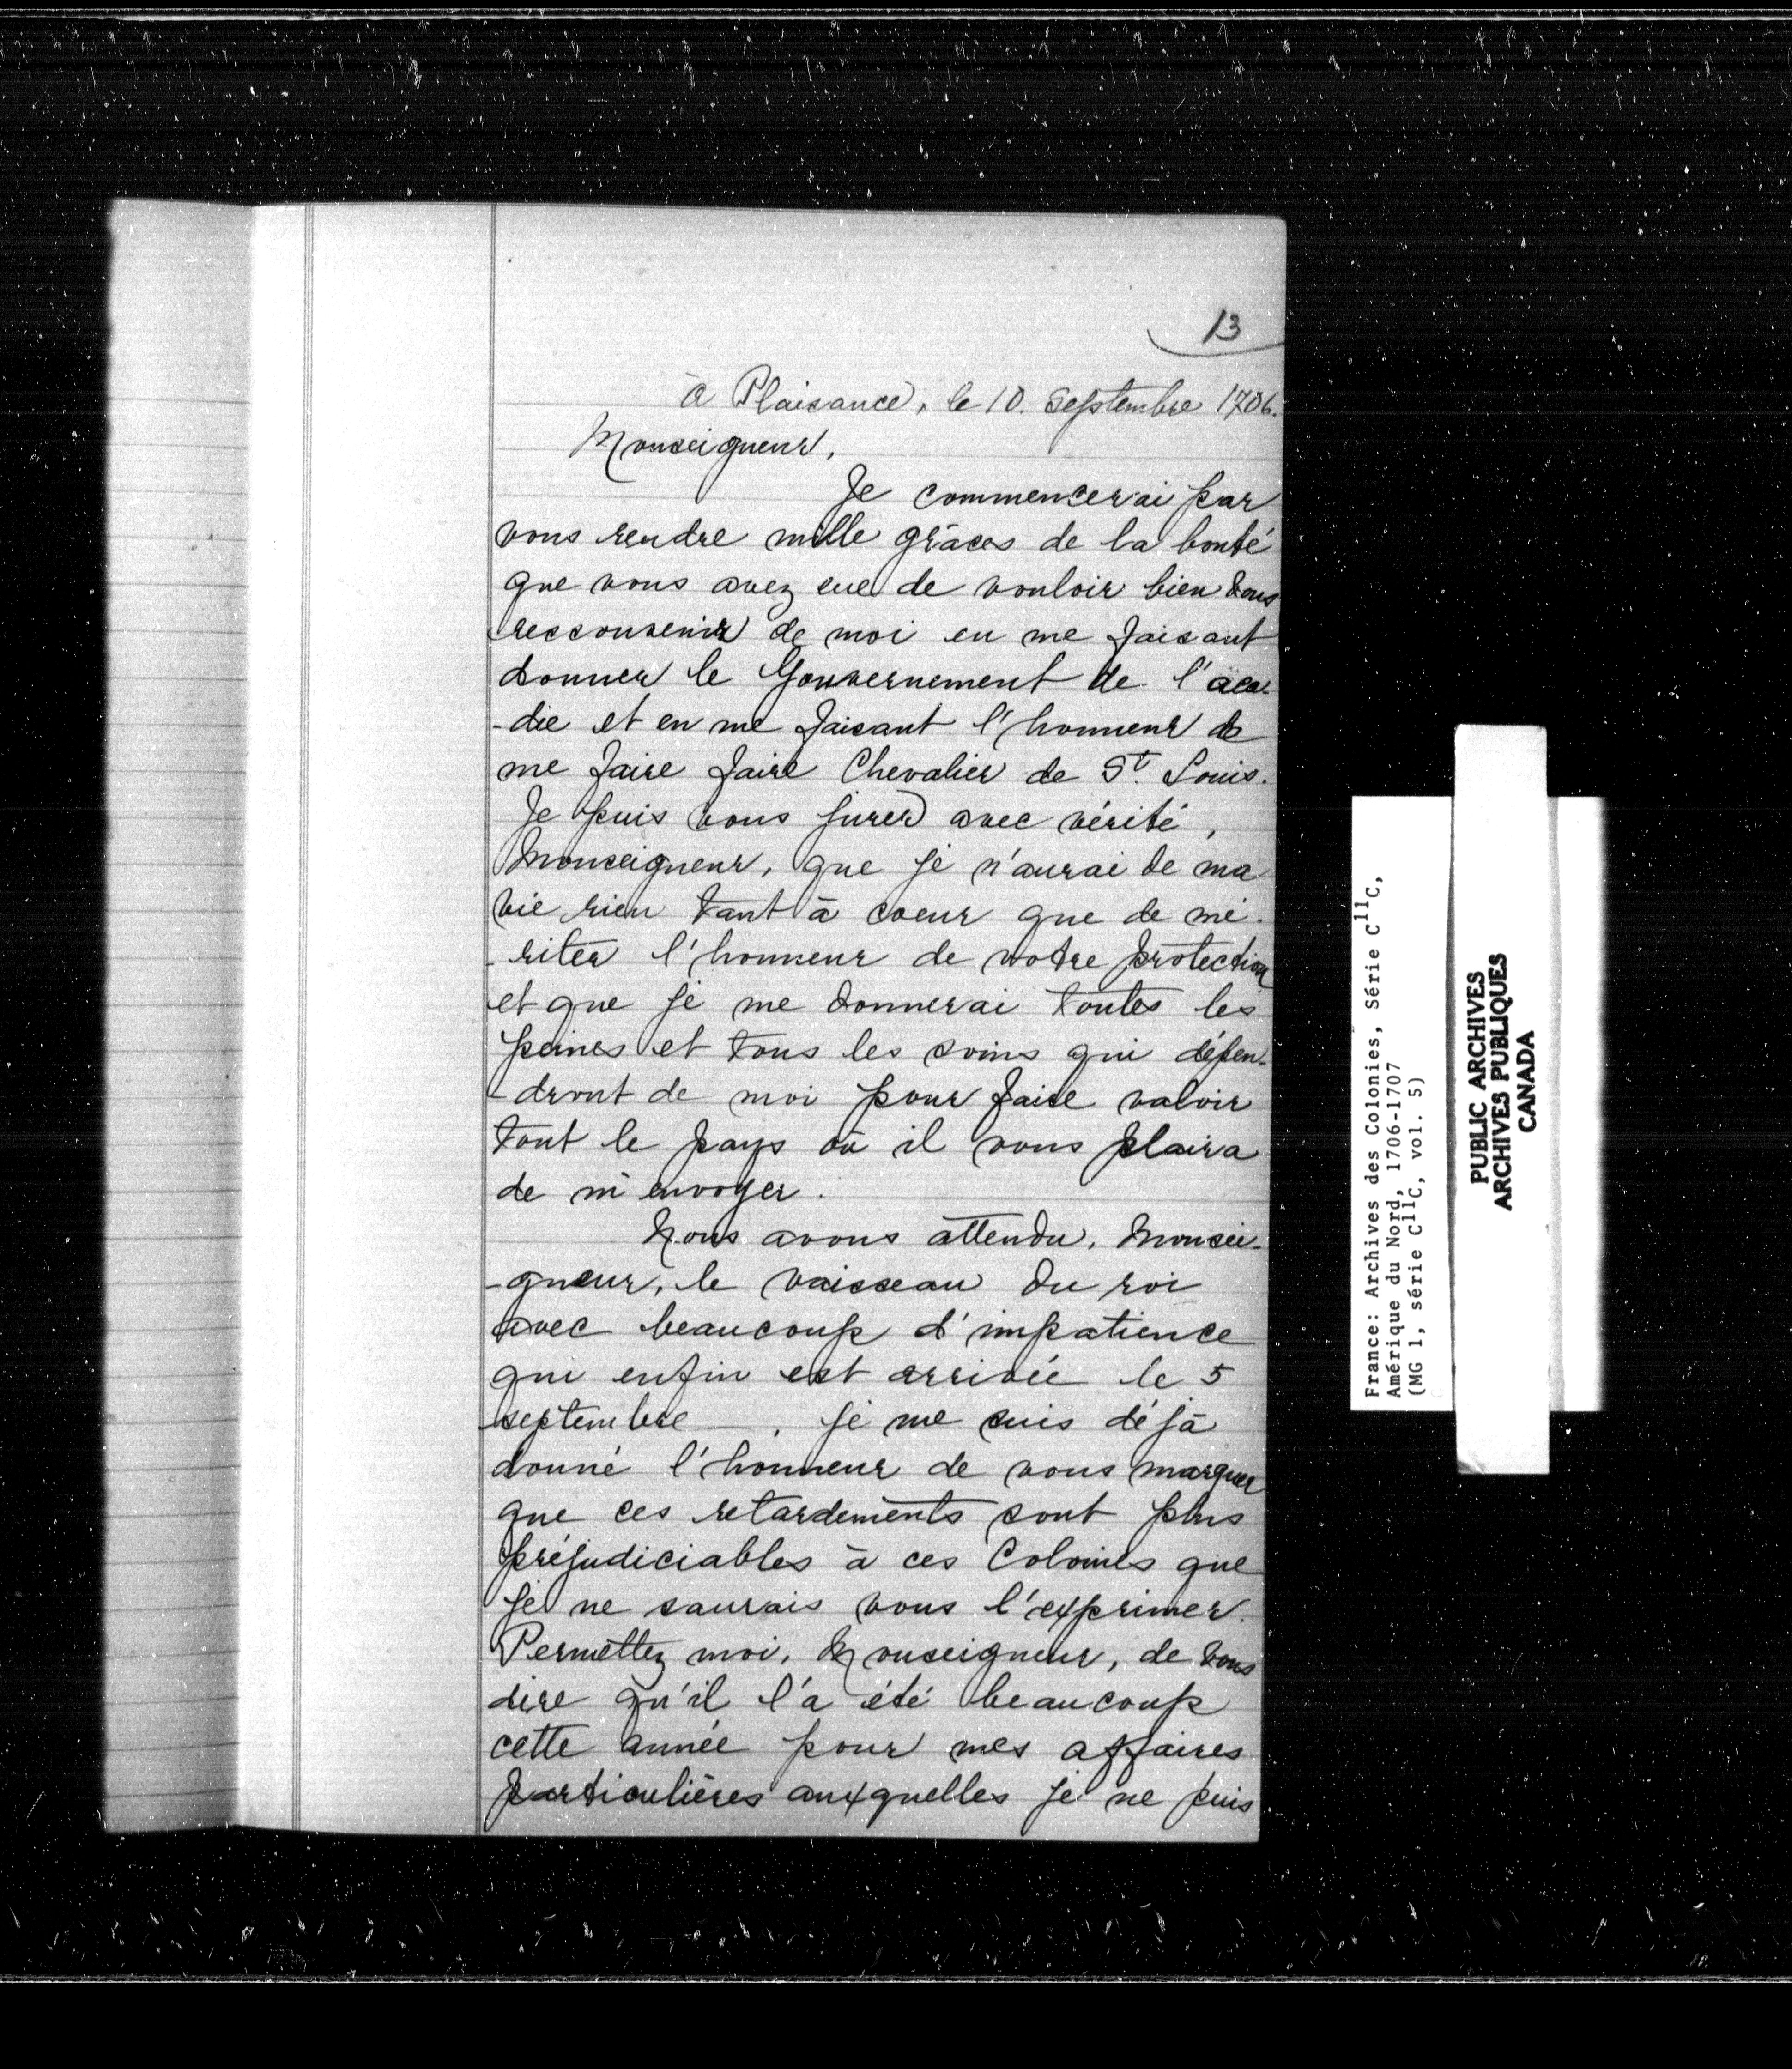 13
à Plaisance, le 10. Septembre 1706.
Monseigneur,
Je commencerai par
vous rendre mille grâces de la bonté
que vous avez eue de vouloir bien vous
ressouvenir de moi en me faisant
donner le Gouvernement de l'aca-
-die et en me faisant l'honneur de
me faire faire Chevalier de St. Louis.
Je puis vous jurer avec vérité,
Monseigneur, que je n'aurai de ma
vie rien tant à coeur que de mé-
-riter l'honneur de votre protection
et que je me donnerai toutes les
peines et tous les soins qui dépen-
-dront de moi pour faire valoir
tout le pays où il vous plaira
de m'envoyer.
Nous avons attendu, Monsei-
-gneur, le vaisseau du roi
avec beaucoup d'impatience
qui enfin est arrivée le 5
septembre, je me suis déjà
donné l'honneur de vous marquer
que ces retardements sont plus
préjudiciables à ces Colonies que
je ne saurais vous l'exprimer.
Permettez moi, Monseigneur, de vous
dire qu'il l'a été beaucoup
cette année pour mes affaires
particulières auxquelles je ne puis
France: Archives des Colonies, Série C11C,
Amérique du Nord, 1706-1707
(MG 1, série C11C, vol. 5)
PUBLIC ARCHIVES
ARCHIVES PUBLIQUES
CANADA